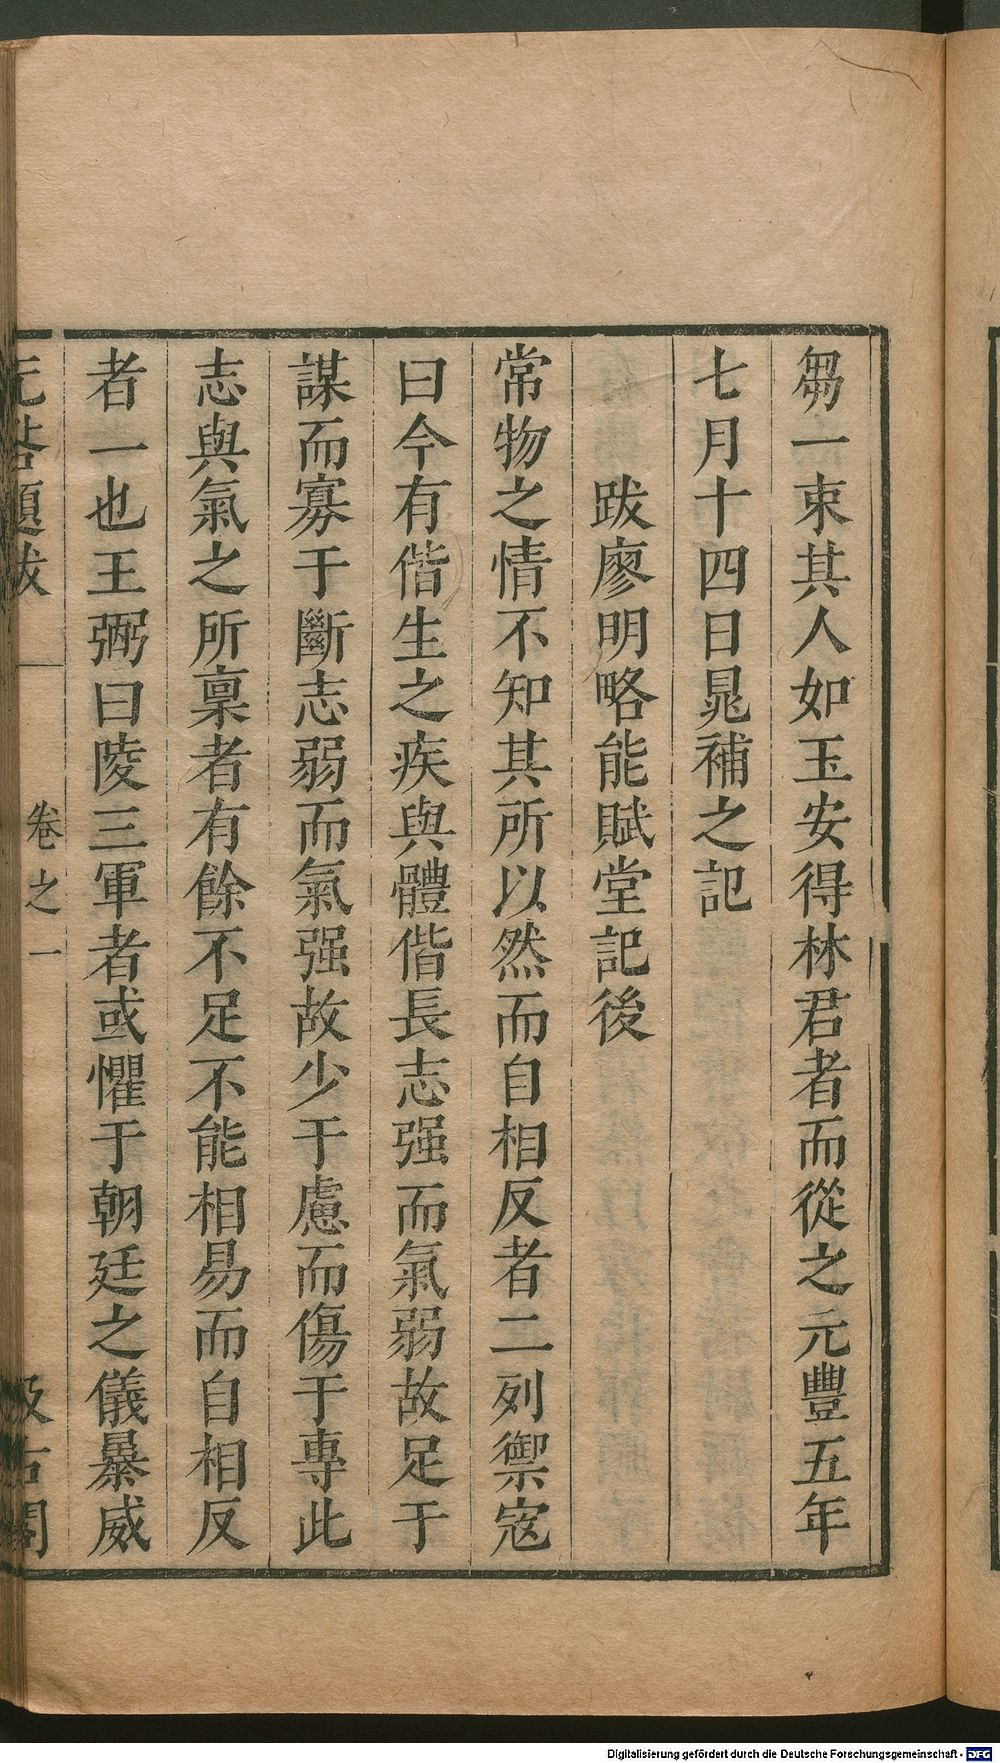 芻一束其人如玉安得林君者而從之元豐五年
七月十四日晁補之記
跋廖明略能賦堂記後
常物之情不知其所以然而自相反者二列禦寇
曰今有偕生之疾與體偕長志强而氣弱故足于
謀而寡于斷志弱而氣强故少于慮而傷于專此
志與氣之所稟者有餘不足不能相易而自相反
者一也王弼曰陵三軍者或懼于朝廷之儀暴威
无咎題跋 卷之一 汲古閣
Digitalisierung gefördert durch die Deutsche Forschungsgemeinschaft - DFG